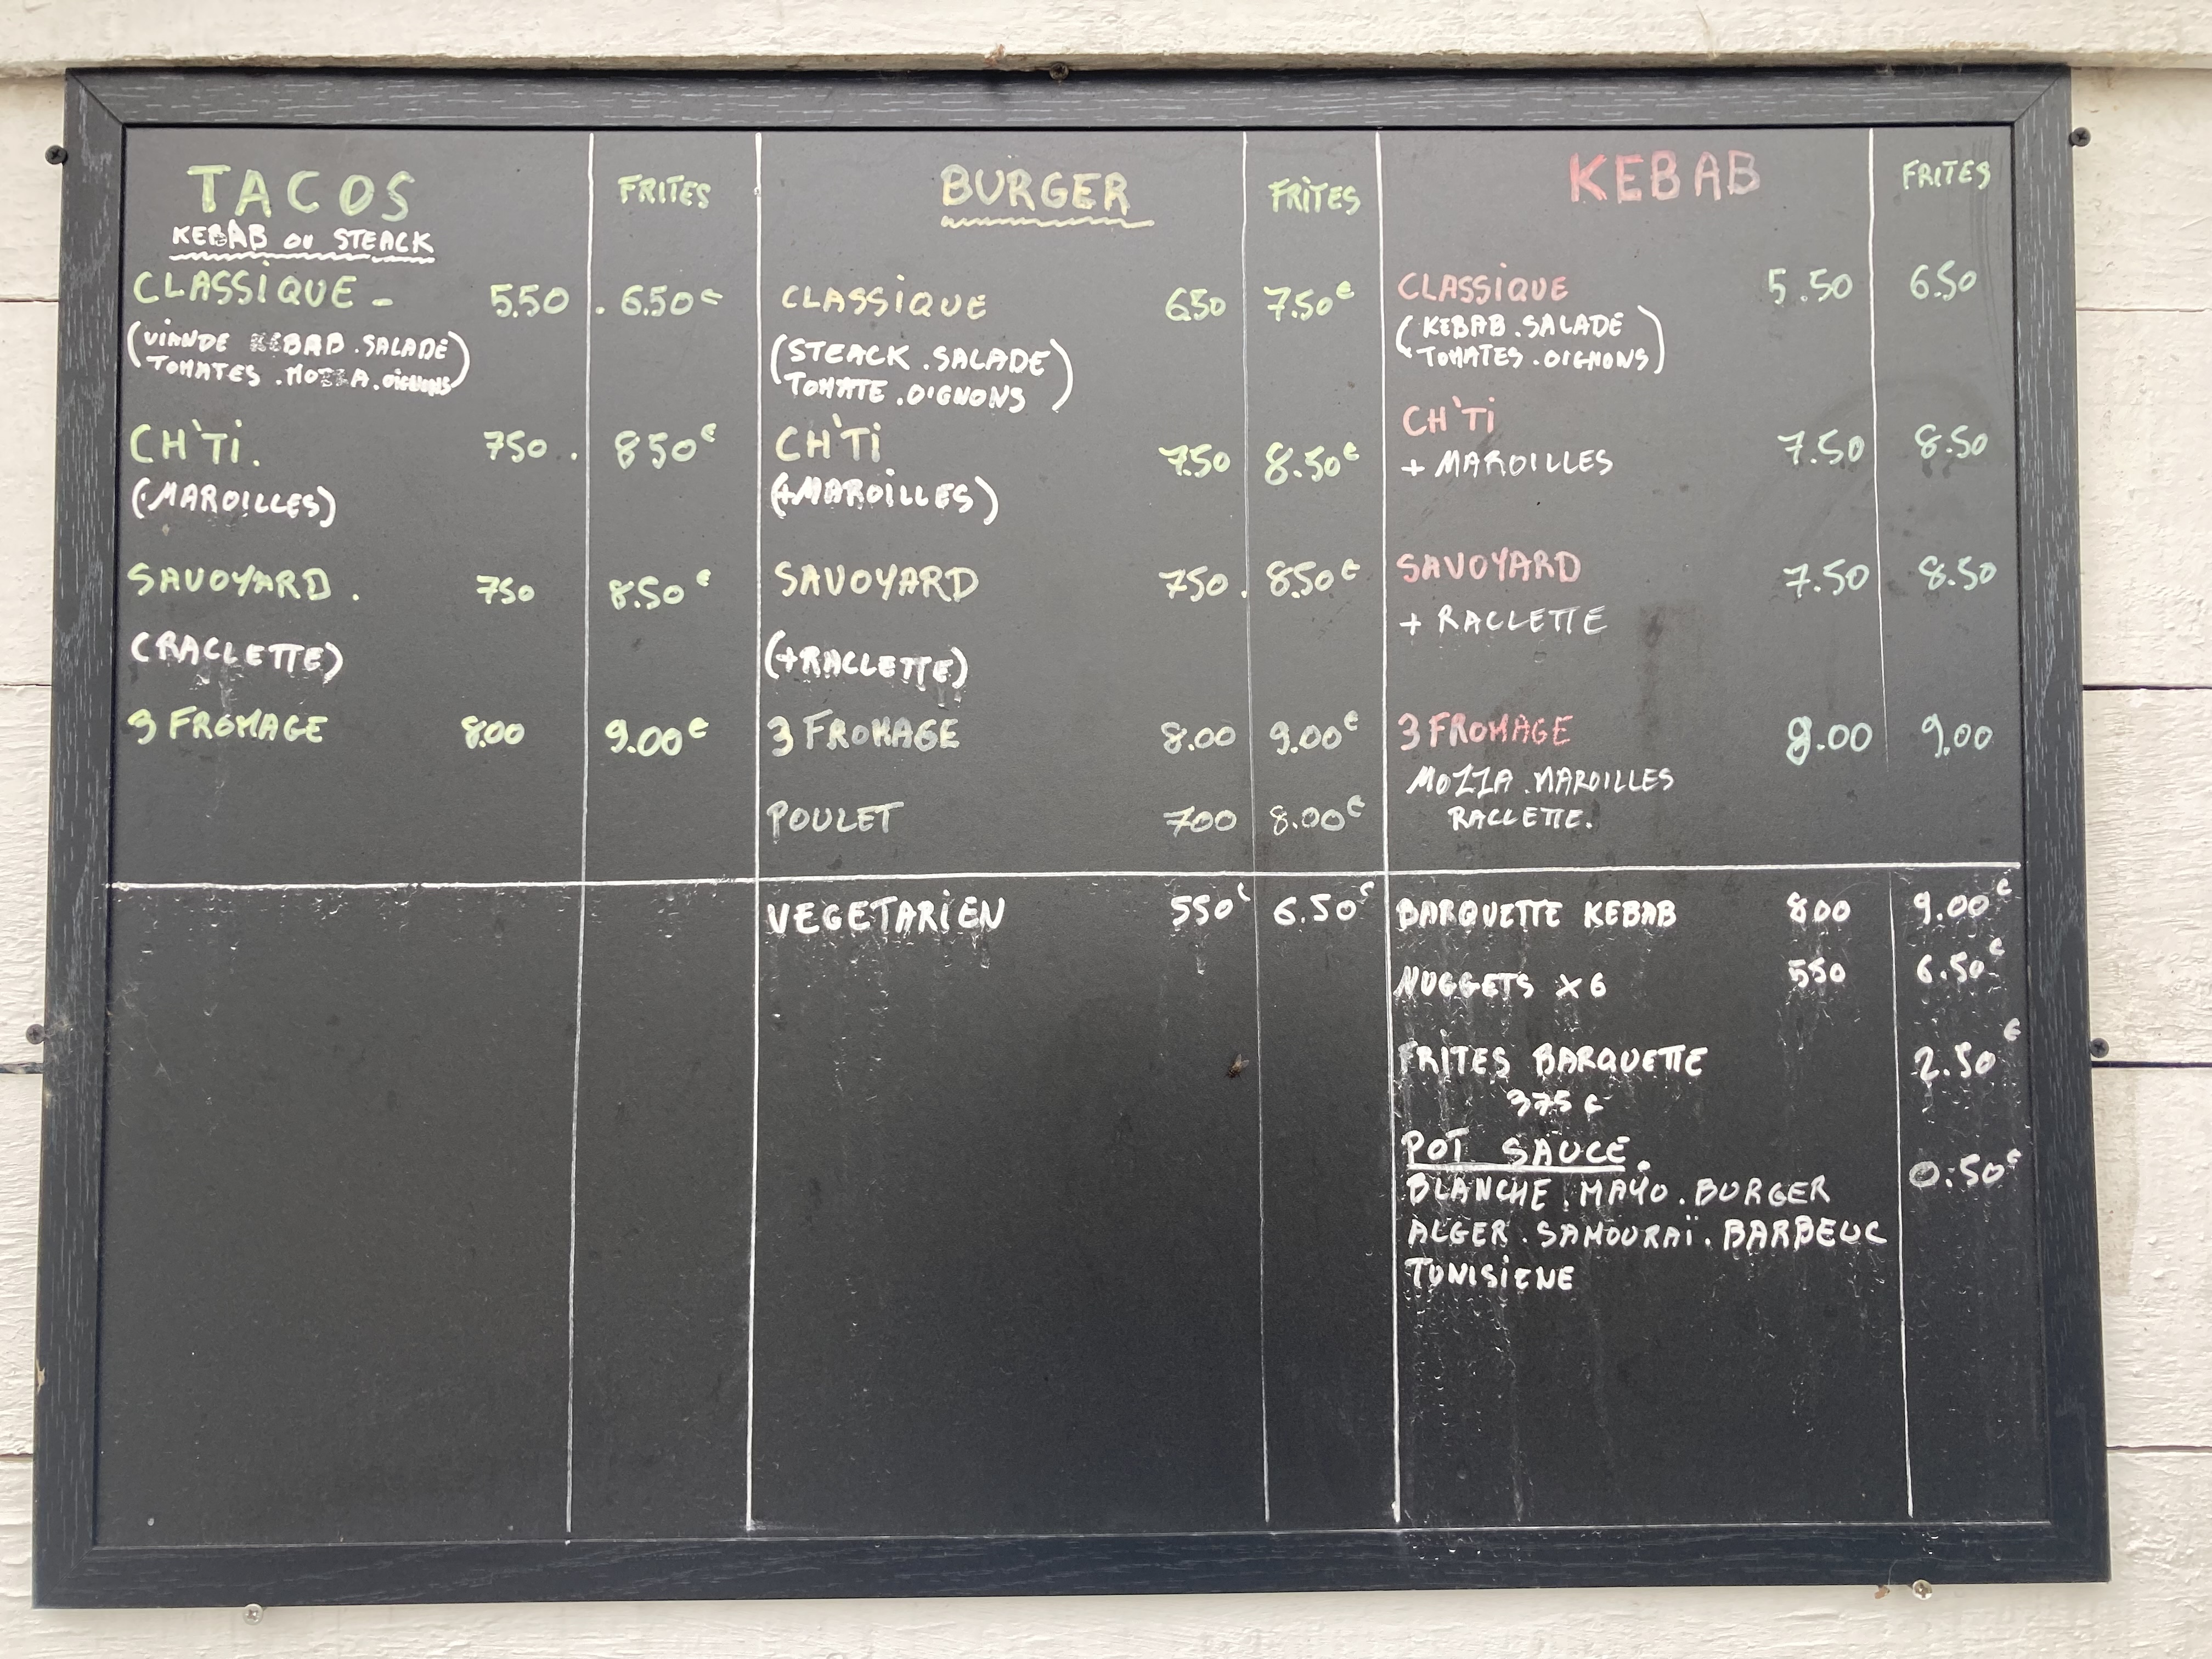 TACOS
KEBAB OU STEACK
FRITES
CLASSIQUE - 5.50 . 6.50€
(VIANDE KEBAB . SALADE
TOMATES . MOZZA . OIGNONS)
CH'TI. 750 . 850€
(MAROILLES)
SAVOYARD . 750 8.50€
(RACLETTE)
3 FROMAGE 8.00 9.00€
BURGER
FRITES
CLASSIQUE 650 7.50€
(STEACK . SALADE
TOMATE . OIGNONS)
CH'TI 7.50 8.50€
(+MAROILLES)
SAVOYARD 750. 850€
(+RACLETTE)
3 FROMAGE 8.00 9.00€
POULET 700 8.00€
VEGETARIEN 550€ 6.50€
KEBAB
FRITES
CLASSIQUE 5.50 6.50
(KEBAB . SALADE
TOMATES . OIGNONS)
CH'TI
+ MAROILLES 7.50 8.50
SAVOYARD 7.50 8.50
+ RACLETTE
3 FROMAGE 8.00 9.00
MOZZA . MAROILLES
RACLETTE.
BARQUETTE KEBAB 800 9.00€
NUGGETS X 6 550 6.50€
FRITES BARQUETTE 2.50€
375 G
POT SAUCE. 0.50€
BLANCHE . MAYO . BURGER
ALGER . SAMOURAÏ . BARBEUC
TUNISIENE